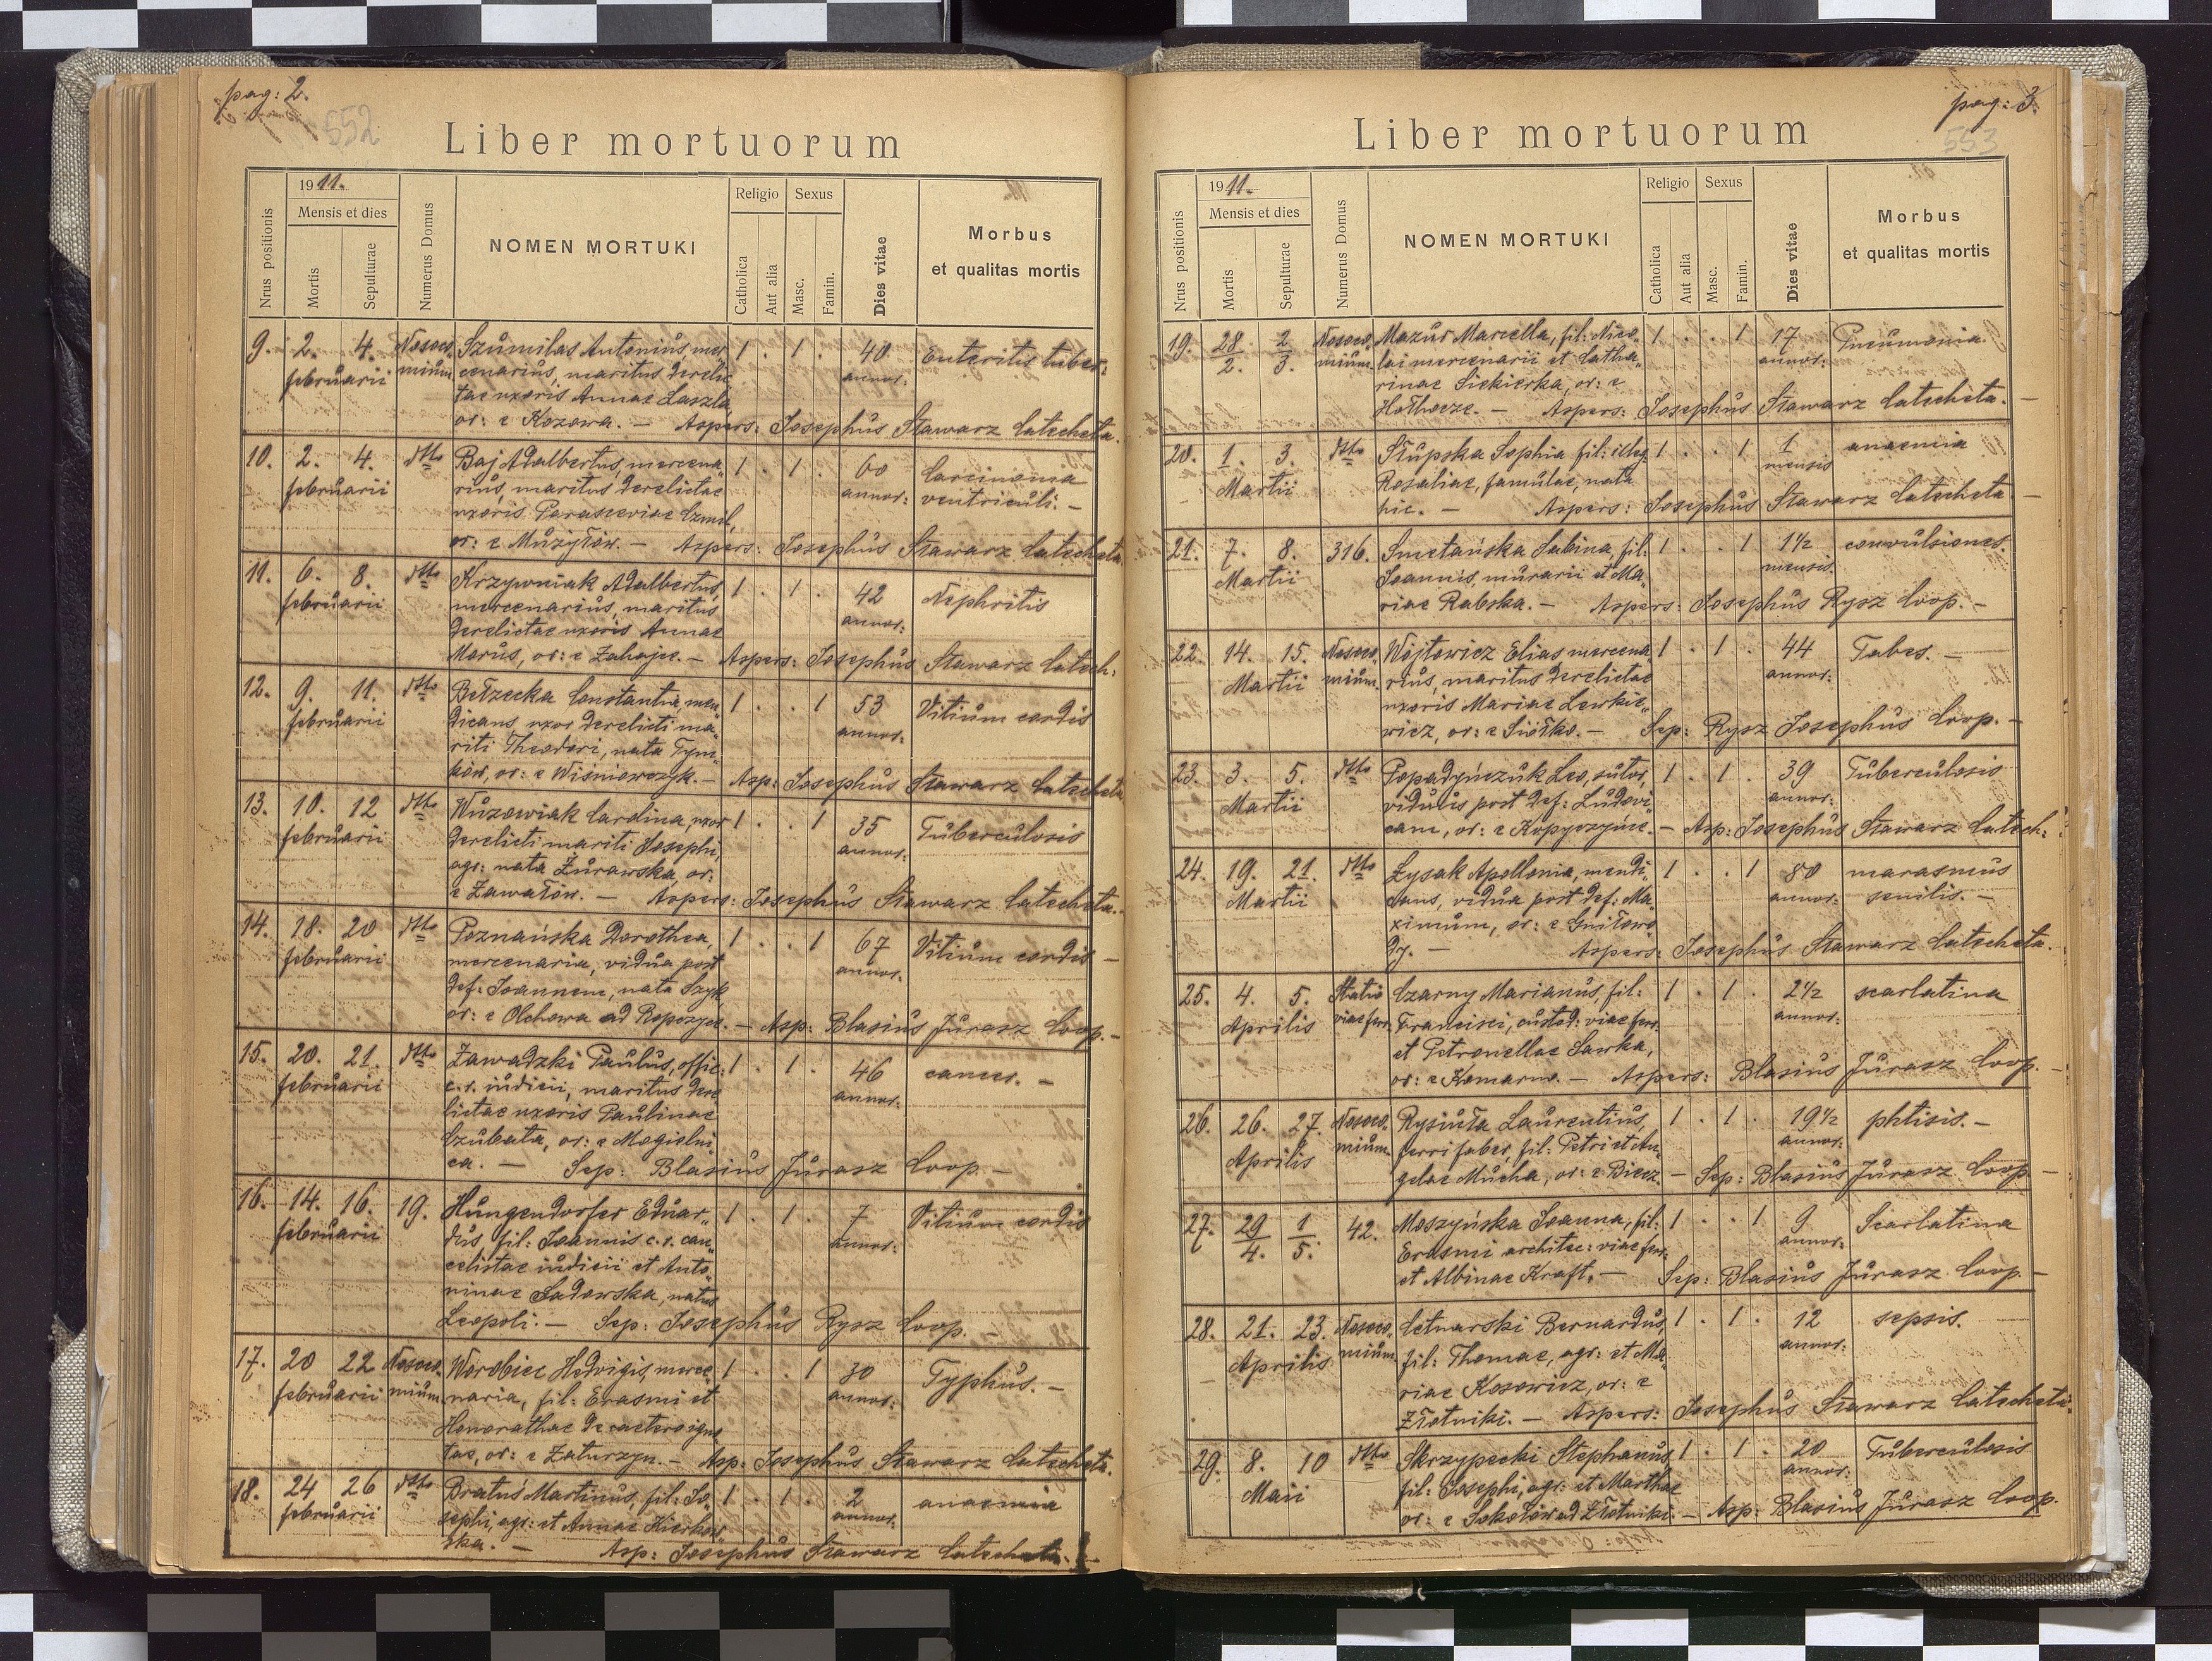 pag: 2.
552
Liber mortuorum
Nrus positionis
1911.
Mensis et dies
Mortis
Sepulturae
Numerus Domus
NOMEN MORTUKI
Religio
Catholica
Aut alia
Sexus
Masc.
Famin.
Dies vitae
Morbus
et qualitas mortis
9. 2. 4. Nosoco„ Szumilas Antonius, mer„ 1 . 1 . 40 Enteritis tuber:
februarii mium. cenarius, maritus derelic„ annor:
tae uxoris Annae Laszla,
or: e Kozowa. — Aspers: Josephus Stawarz Catecheta.
10. 2. 4. dtto Baj Adalbertus, mercena„ 1 . 1 . 60 Carcinomia
februarii rius, maritus derelictae annor: ventriculi. —
uxoris Parasceviae Czmil,
or: e Muzyłów. — Aspers: Josephus Stawarz Catecheta
11. 6. 8. dtto Krzywniak Adalbertus, 1 . 1 . 42 Nephritis
februarii mercenarius, maritus annor:
derelictae uxoris Annae
Marus, or: e Zahajce. — Aspers: Josephus Stawarz Catech:
12. 9. 11. dtto Bełzecka Constantia, men„ 1 . . 1 53 Vitium cordis
februarii dicans uxor derelicti ma„ annor:
riti Theodori, nata Tym„
ków, or: e Wiśniowczyk. — Asp: Josephus Stawarz Catecheta
13. 10. 12 dtto Wuzowiak Carolina, uxor 1 . . 1 35 Tuberculosis
februarii derelicti mariti Josephi, annor:
agr: nata Żurawska, or:
e Zawałów. — Aspers: Josephus Stawarz Catecheta.
14. 18. 20 dtto Poznańska Dorothea, 1 . . 1 67 Vitium cordis —
februarii mercenaria, vidua post annor.
def: Joannem, nata Szyk
or: e Olchowa ad Ropczyce. — Asp: Blasius Jurasz Coop. —
15. 20. 21. dtto Zawadzki Paulus, offic: 1 . 1 . 46 cancer. —
februarii c. r. iudicii, maritus dere„ annor:
lictae uxoris Paulinae
Czubata, or: e Mogielni„
ca. — Sep: Blasius Jurasz Coop. —
16. 14. 16. 19. Hungendorfer Eduar„ 1 . 1 . 7 Vitium cordis
februarii dus, fil: Joannis c. r. can„ annor:
celistae iudicii et Anto„
ninae Sadowska, natus
Leopoli. — Sep: Josephus Rysz Coop. —
17. 20 22 Nosoco„ Worobiec Hedvigis, merce„ 1 . . 1 30 Typhus. —
februarii mium. naria, fil: Erasmi et annor:
Honorathae de caetero igno„
tae, or: e Zaturzyn. — Asp: Josephus Stawarz Catecheta.
18. 24 26 dtto Bratuś Martinus, fil: Jo„ 1 . 1 . 2 anaemia
februarii sephi, agr: et Annae Kierkow„ annor.
ska. — Asp: Josephus Stawarz Catecheta.
pag: 3.
553
Liber mortuorum
Nrus positionis
1911.
Mensis et dies
Mortis
Sepulturae
Numerus Domus
NOMEN MORTUKI
Religio
Catholica
Aut alia
Sexus
Masc.
Famin.
Dies vitae
Morbus
et qualitas mortis
19. 28/2. 2/3. Nosoco„ Mazur Marcella, fil: Nico„ 1 . . 1 17 Pneumonia.
mium. lai mercenarii et Catha„ annor:
rinae Siekierka, or: e
Hołhocze. — Aspers: Josephus Stawarz Catecheta. —
20. 1. 3. dtto Słupska Sophia fil: illeg: 1 . . 1 1 anaemia
Martii Rosaliae, famulae, nata mensis
hic. — Aspers: Josephus Stawarz Catecheta —
21. 7. 8. 316. Smetańska Sabina, fil: 1 . . 1 1½ convulsiones.
Martii Joannis, murarii et Ma„ mensis.
riae Rabska. — Aspers: Josephus Rysz Coop. —
22. 14. 15. Nosoco„ Wojtowicz Elias mercena„ 1 . 1 . 44 Tabes. —
Martii mium. rius, maritus derelictae annor:
uxoris Mariae Lewkie„
wicz, or: e Siółko. — Sep: Rysz Josephus Coop. —
23. 3. 5. dtto Popadyńczuk Leo, sutor, 1 . 1 . 39 Tuberculosis
Martii viduus post def: Ludovi„ annor:
cam, or: e Kopyczyńce. — Asp: Josephus Stawarz Catech:
24. 19. 21. dtto Łysak Apollonia, mendi„ 1 . . 1 80 marasmus
Martii cans, vidua post def: Ma„ annor: senilis. —
ximum, or: e Gniłowo„
dy. — Aspers: Josephus Stawarz Catecheta.
25. 4. 5. Statio Czarny Marianus, fil: 1 . 1 . 2½ scarlatina
Aprilis viae ferr. Francisci, custod: viae ferr. annor:
et Petronellae Sawka,
or: e Komarno. — Aspers: Blasius Jurasz Coop. —
26. 26. 27. Nosoco„ Rysiuła Laurentius, 1 . 1 . 19½ phtisis. —
Aprilis mium. ferri faber, fil: Petri et An„ annor:
gelae Mucha, or: e Biecz. — Sep: Blasius Jurasz Coop —
27. 29/4. 1/5. 42. Moszyńska Joanna, fil: 1 . . 1 9 Scarlatina
Erasmi architec: viae ferr: annor:
et Albinae Kraft. — Sep: Blasius Jurasz Coop. —
28. 21. 23. Nosoco„ Cetnarski Bernardus, 1 . 1 . 12 sepsis.
Aprilis mium. fil: Thomae, agr: et Ma„ annor:
riae Kosowicz, or: e
Złotniki. — Aspers: Josephus Stawarz Catecheta.
29. 8. 10 dtto Skrzypecki Stephanus, 1 . 1 . 20 Tuberculosis
Maii fil: Josephi, agr: et Marthae annor:
or: e Sokołów ad Złotniki. — Asp: Blasius Jurasz Coop.